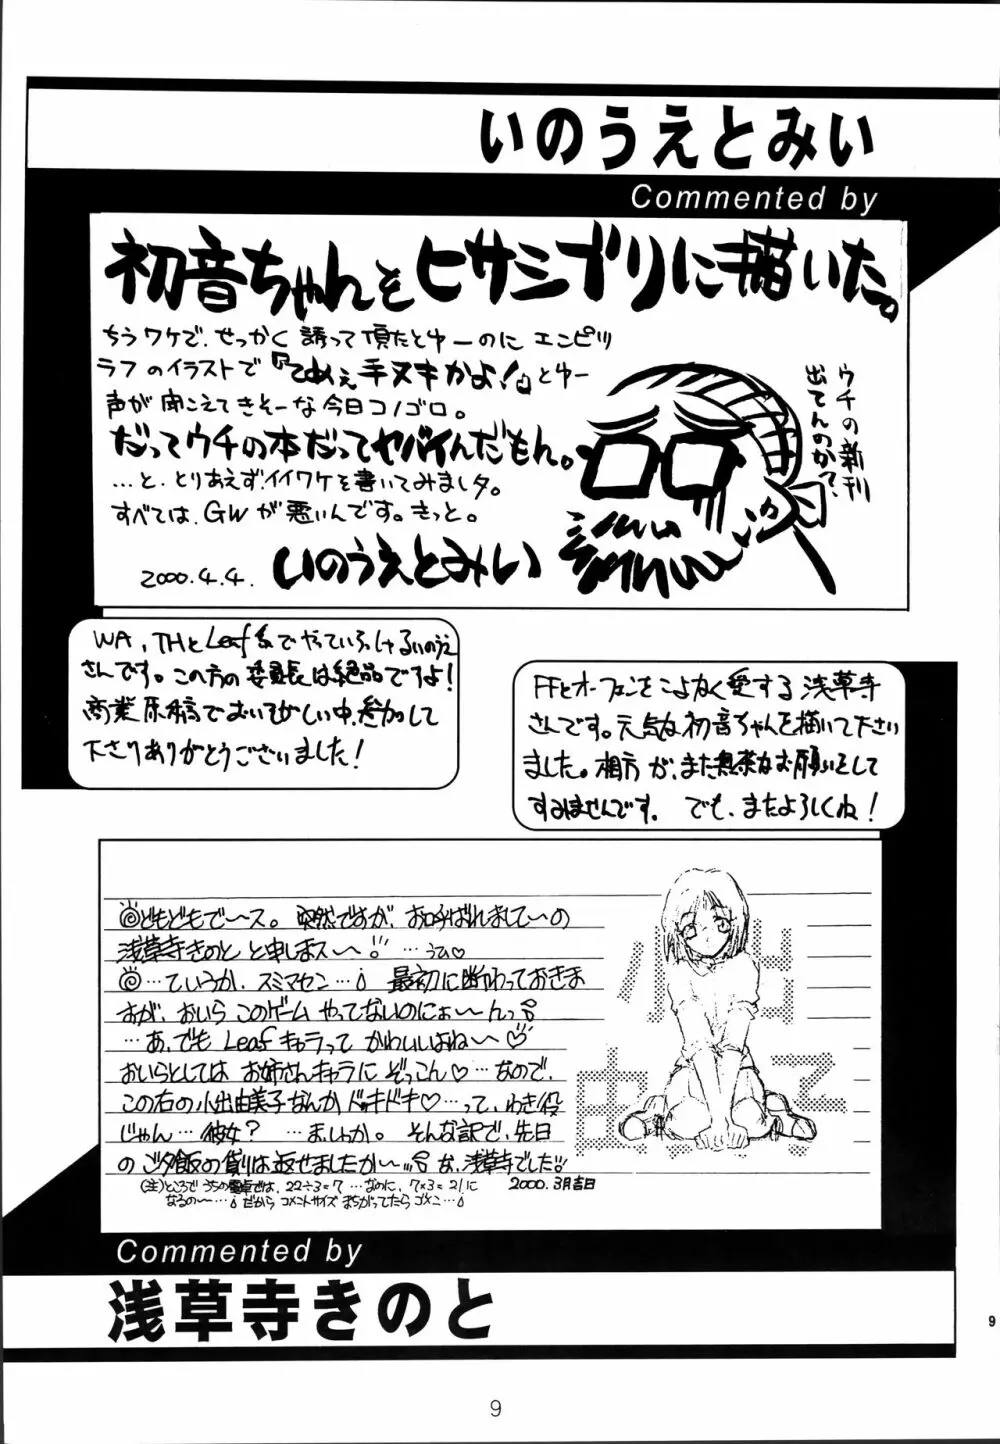 いのうえとみい
Commented by
初音ちゃんをヒサシブリに描いた。
ちうワケで、せっかく誘って頂たとゆーのにエンピツ
ラフのイラストで『てめぇ手ヌキかよ!』とゆー
声が聞こえてきそーな今日コノゴロ。
だってウチの本だってヤバイんだもん。
…と、とりあえずイイワケを書いてみましタ。
すべては、GWが悪いんです。きっと。
2000.4.4. いのうえとみい
ウチの新刊
出てんのか?
WA、THとLeaf系でやっていらっしゃるいのうえ
さんです。この方の委員長は絶品ですよ!
商業原稿でおいそがしい中、参加して
下さりありがとうございました!
FFとオーフェンをこよなく愛する浅草寺
さんです。元気な初音ちゃんを描いて下さい
ました。相方が、また無茶なお願いをして
すみませんです。でも、またよろしくね!
どもどもで〜ス。突然ですが、お呼ばれしまして〜の
浅草寺きのと と申しまス〜 …うひ♡
…ていうか、スミマセン… 最初に断わっておきま
すが、おいら このゲーム やってないのにぉ〜んっ
…あ、でも Leaf キャラって かわいいよね〜♡
おいらとしては お姉さんキャラに ぞっこん♡…なので、
この右の小出由美子なんか ドッキドキ♡…って、わき役
じゃん…彼女? …ましょか。そんな訳で、先日
の ご夕飯の借りは返せましたか〜 な、浅草寺でした!!
(注)ところで うちの電卓では、22÷3=7 …なのに、7×3=21に
なるの〜… だから コメントサイズ まちがってたら ゴメンこ…
2000.3月吉日
小出
由
子
Commented by
浅草寺きのと
9
9